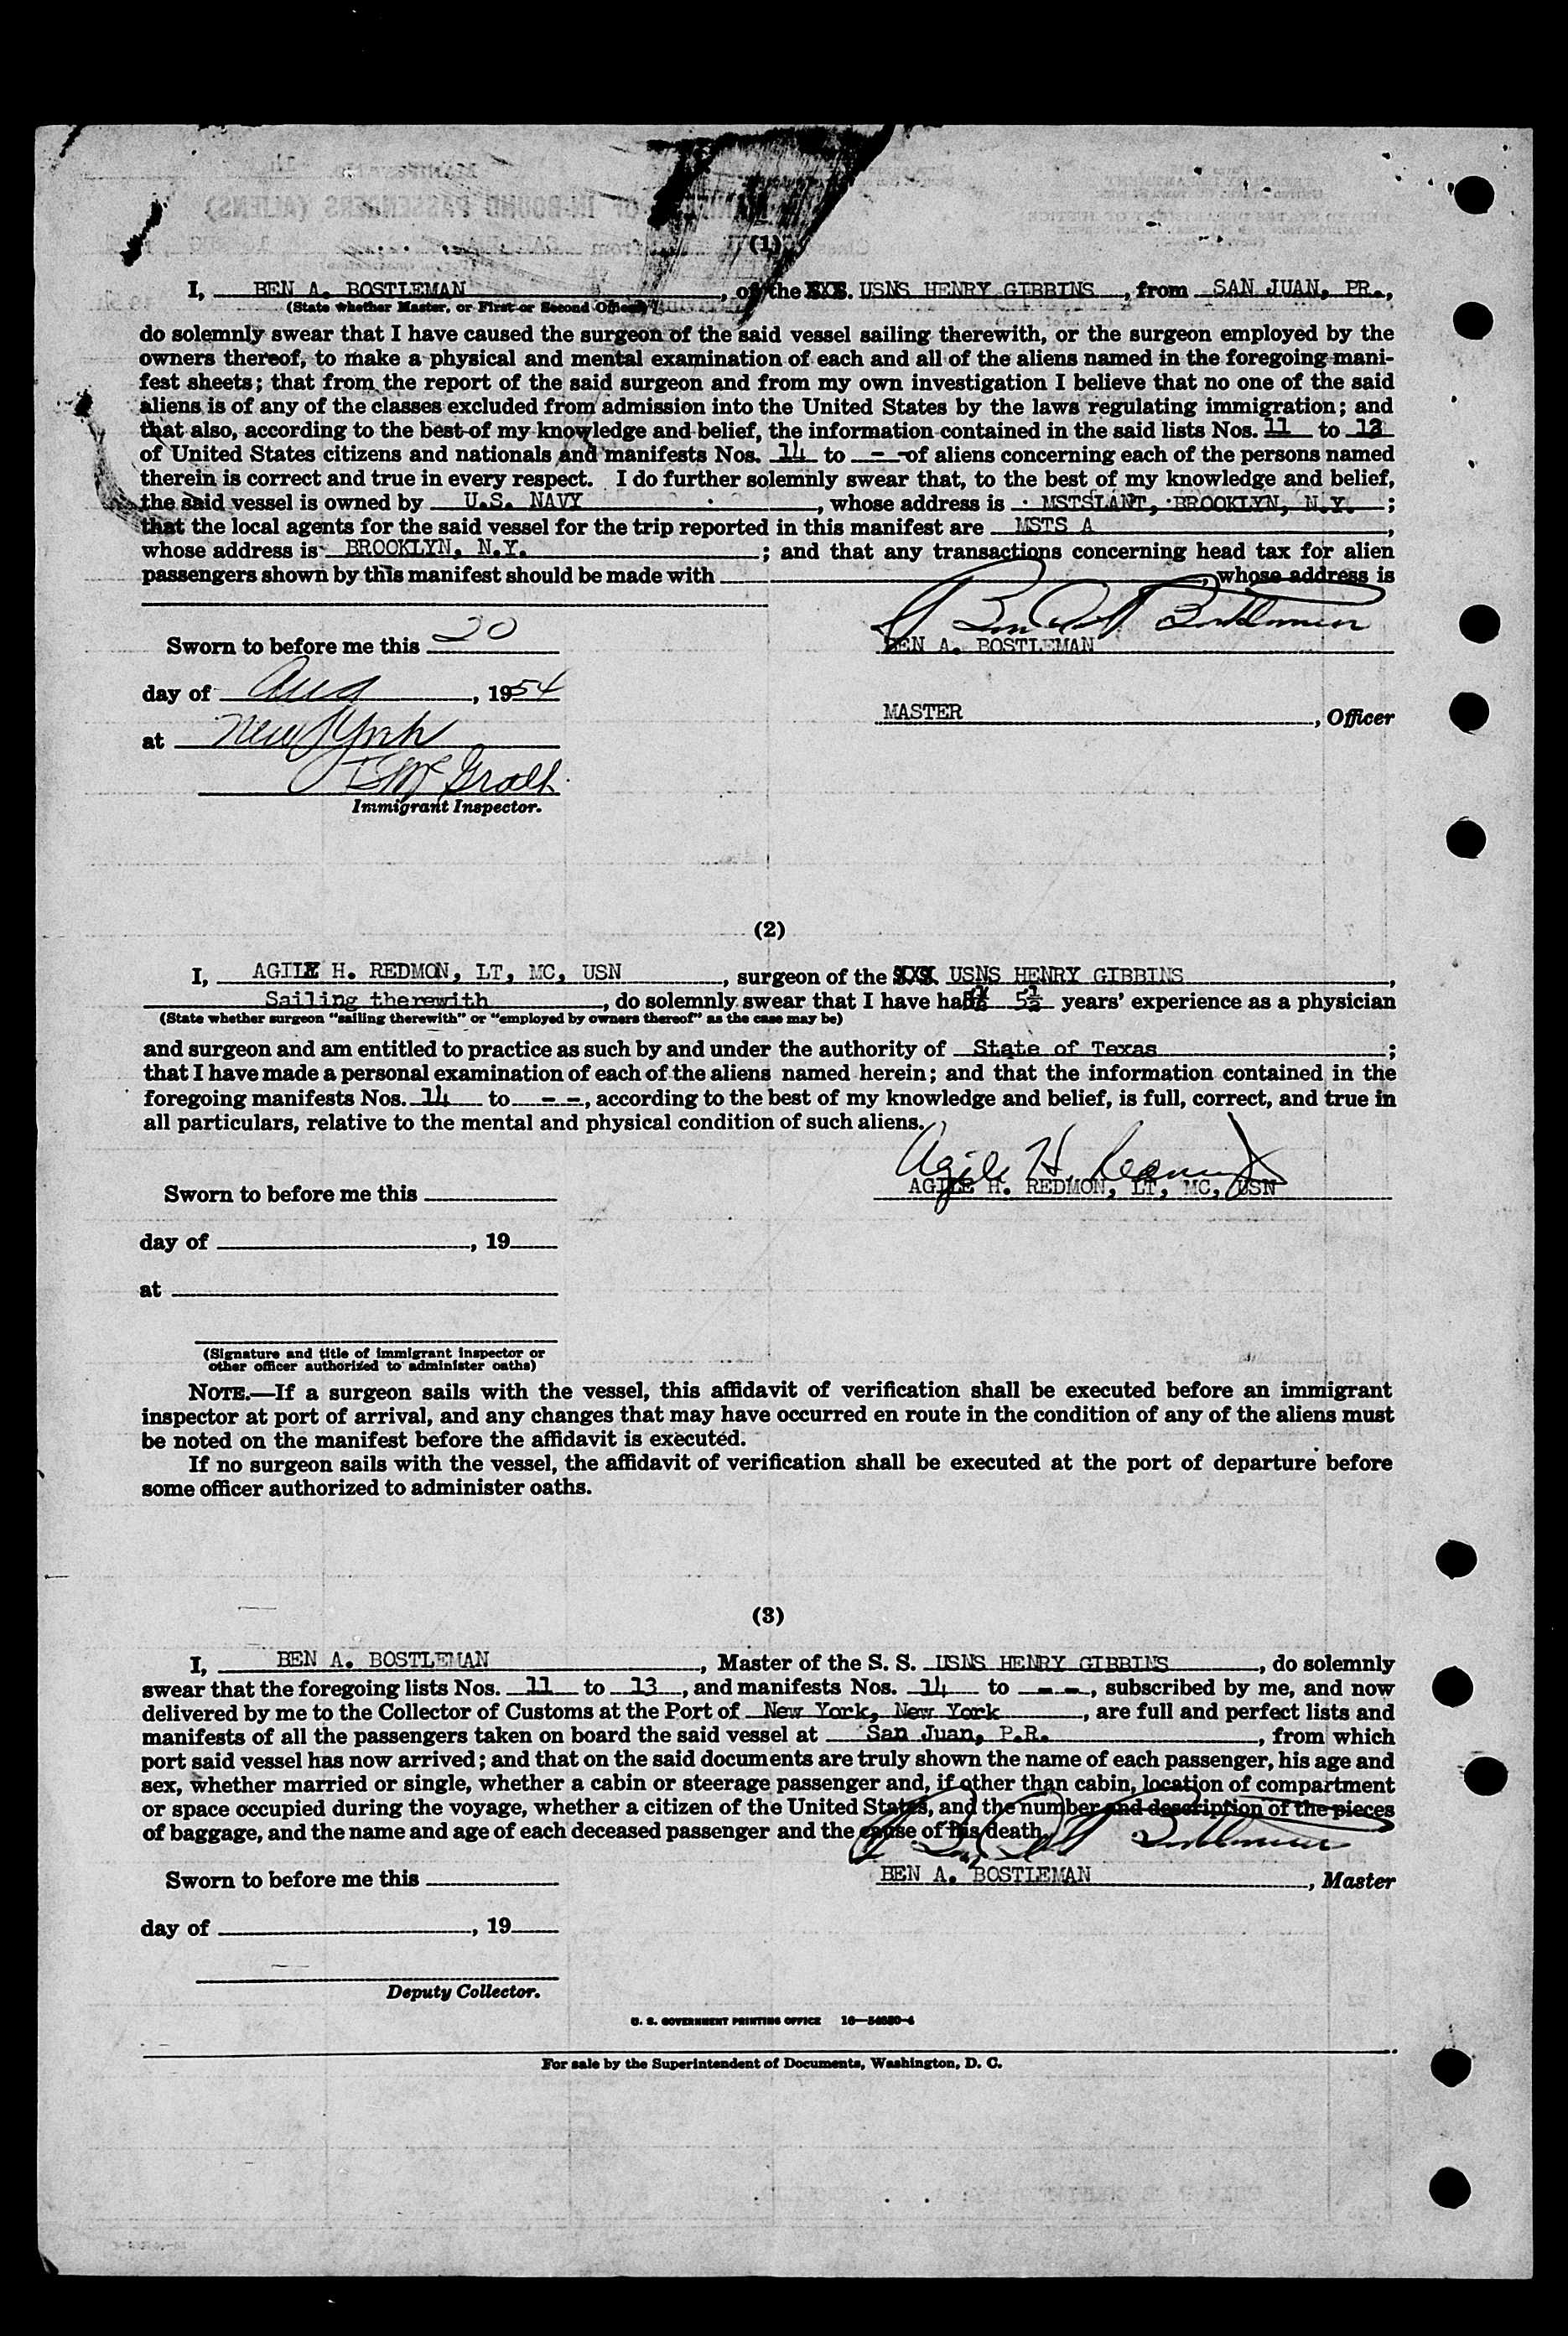 (1)
I, BEN A. BOSTLEMAN, of the USNS HENRY GIBBINS, from SAN JUAN, PR.,
(State whether Master, or First or Second Officer)
do solemnly swear that I have caused the surgeon of the said vessel sailing therewith, or the surgeon employed by the
owners thereof, to make a physical and mental examination of each and all of the aliens named in the foregoing mani-
fest sheets; that from the report of the said surgeon and from my own investigation I believe that no one of the said
aliens is of any of the classes excluded from admission into the United States by the laws regulating immigration; and
that also, according to the best of my knowledge and belief, the information contained in the said lists Nos. 11 to 13
of United States citizens and nationals and manifests Nos. 14 to - - of aliens concerning each of the persons named
therein is correct and true in every respect. I do further solemnly swear that, to the best of my knowledge and belief,
the said vessel is owned by U.S. NAVY, whose address is MSTSLANT, BROOKLYN, N.Y. ;
that the local agents for the said vessel for the trip reported in this manifest are MSTS A,
whose address is BROOKLYN, N.Y. ; and that any transactions concerning head tax for alien
passengers shown by this manifest should be made with , whose address is
Sworn to before me this 20
BEN A. BOSTLEMAN
day of Aug, 1954
MASTER, Officer
at New York
McGrath
Immigrant Inspector.
(2)
I, AGILE H. REDMON, LT, MC, USN, surgeon of the USNS HENRY GIBBINS,
Sailing therewith, do solemnly swear that I have had 5½ years' experience as a physician
(State whether surgeon "sailing therewith" or "employed by owners thereof" as the case may be)
and surgeon and am entitled to practice as such by and under the authority of State of Texas;
that I have made a personal examination of each of the aliens named herein; and that the information contained in the
foregoing manifests Nos. 14 to - -, according to the best of my knowledge and belief, is full, correct, and true in
all particulars, relative to the mental and physical condition of such aliens.
Agile H. Redmon
Sworn to before me this
AGILE H. REDMON, LT, MC, USN
day of , 19
at
(Signature and title of immigrant inspector or
other officer authorized to administer oaths)
NOTE.—If a surgeon sails with the vessel, this affidavit of verification shall be executed before an immigrant
inspector at port of arrival, and any changes that may have occurred en route in the condition of any of the aliens must
be noted on the manifest before the affidavit is executed.
If no surgeon sails with the vessel, the affidavit of verification shall be executed at the port of departure before
some officer authorized to administer oaths.
(3)
I, BEN A. BOSTLEMAN, Master of the S. S. USNS HENRY GIBBINS, do solemnly
swear that the foregoing lists Nos. 11 to 13, and manifests Nos. 14 to - -, subscribed by me, and now
delivered by me to the Collector of Customs at the Port of New York, New York, are full and perfect lists and
manifests of all the passengers taken on board the said vessel at San Juan, P.R., from which
port said vessel has now arrived; and that on the said documents are truly shown the name of each passenger, his age and
sex, whether married or single, whether a cabin or steerage passenger and, if other than cabin, location of compartment
or space occupied during the voyage, whether a citizen of the United States, and the number and description of the pieces
of baggage, and the name and age of each deceased passenger and the cause of his death.
Sworn to before me this
BEN A. BOSTLEMAN, Master
day of , 19
Deputy Collector.
U. S. GOVERNMENT PRINTING OFFICE
For sale by the Superintendent of Documents, Washington, D. C.